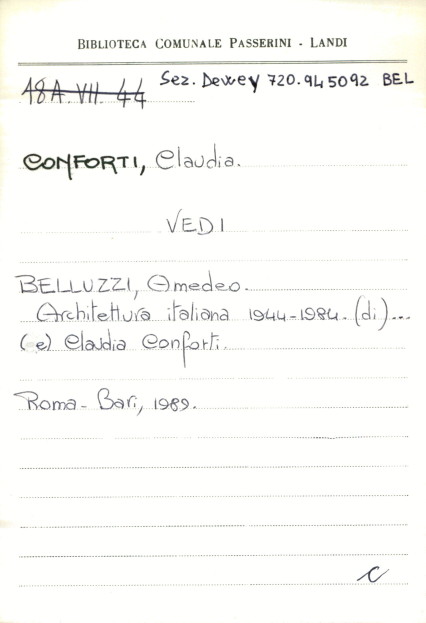 BIBLIOTECA COMUNALE PASSERINI - LANDI
48A. VII. 44 Sez. Dewey 720.945092 BEL
CONFORTI, Claudia.
VEDI
BELLUZZI, Amedeo.
Architettura italiana 1944-1984. (di)...
(e) Claudia Conforti.
Roma - Bari, 1989.
c